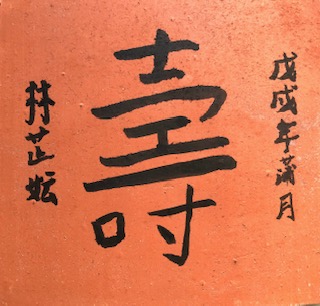 戊戌年蒲月
壽
林芷妘